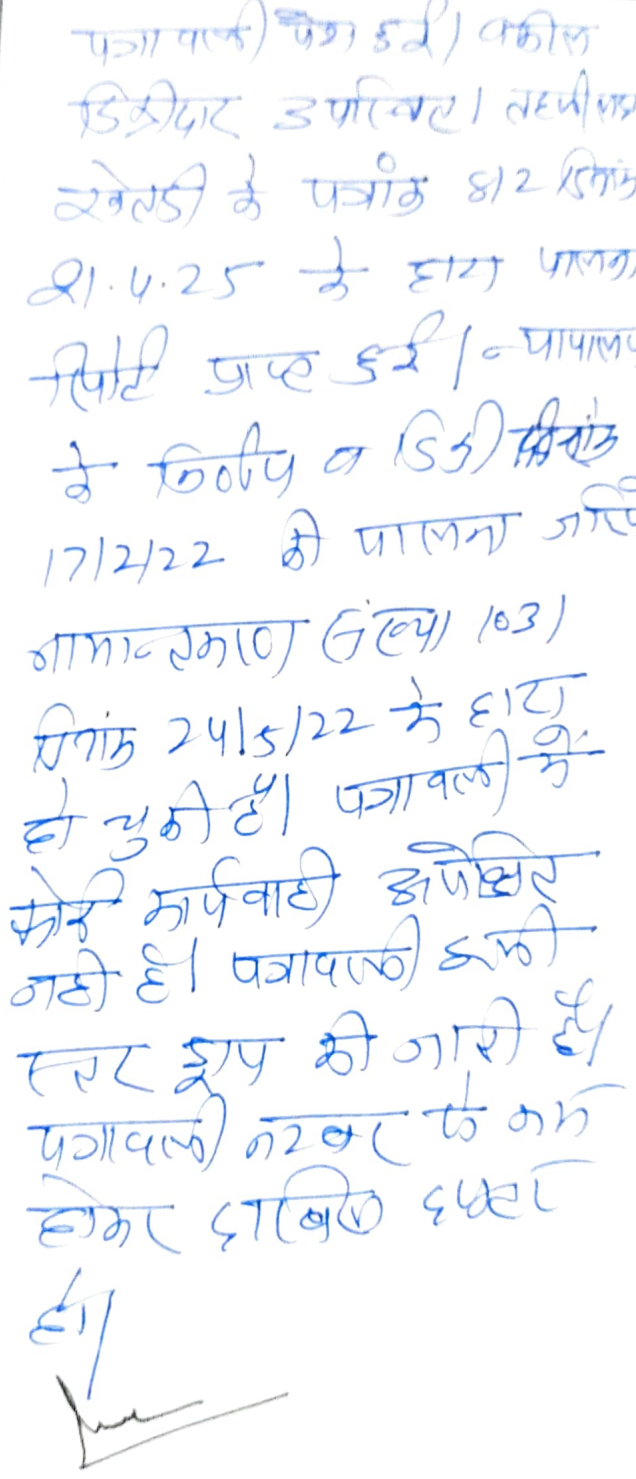 पत्रावली पेश हुई। वकील
डिक्रीदार उपस्थित। तहसीलदार
खेतडी के पत्रांक 812 दिनांक
21.4.25 के द्वारा पालना
रिपोर्ट प्राप्त हुई। न्यायालय
के निर्णय व डिक्री दिनांक
17/2/22 की पालना जरिये
नामान्तकरण संख्या 1031
दिनांक 24/5/22 के द्वारा
हो चुकी है। पत्रावली में
कोई कार्यवाही अपेक्षित
नही है। पत्रावली इसी
स्तर ड्राप की जाती है।
पत्रावली नम्बर से कम
होकर दाखिल दफ्तर
हो।